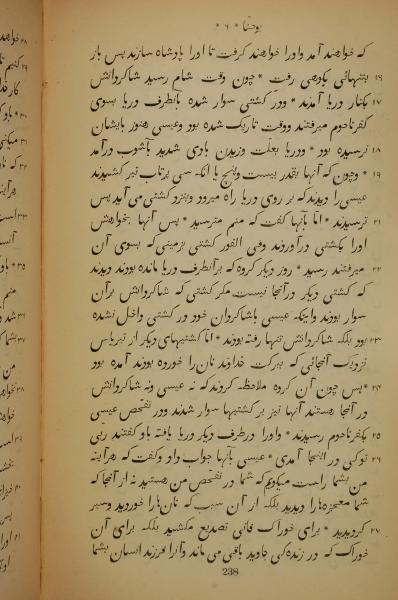 یوحنا * ۶ *
که خواهند آمد واورا خواهند گرفت تا اورا پادشاه سازند پس باز
۱۶ بتنهائی بکوهی رفت * چون وقت شام رسید شاگردانش
۱۷ بکنار دریا آمدند * ودر کشتی سوار شده بآنطرف دریا بسوی
کفرناحوم میرفتند ووقت تاریک شده بود وعیسی هنوز بایشان
۱۸ نرسیده بود * ودریا بعلت وزیدن بادی شدید بآشوب درآمد
۱۹ * وچون که آنها بقدر بیست وپنج یا انکه سی پرتاب تیر کشیدند
عیسی را دیدند که بر روی دریا راه میرود وبنزد کشتی می آید پس
۲۱ ترسیدند * امّا بآنها گفت که منم مترسید * پس آنها بخواهش
اورا بکشتی درآوردند وفی الفور کشتی بزمینی که بسوی آن
۲۲ میرفتند رسید * روز دیگر گروه که برآنطرف دریا مانده بودند دیدند
که کشتی دیگر درآنجا نیست مگر کشتی که شاگردانش برآن
سوار بودند واینکه عیسی باشاگردان خود در کشتی داخل نشده
۲۳ بود بلکه شاگردانش تنها رفته بودند * امّا کشتیهای دیگر از تیبریاس
نزدیک آنجائی که ببرکت خداوند نان را خورده بودند آمده بود
۲۴ * پس چون آن گروه ملاحظه کردند که نه عیسی ونه شاگردانش
در آنجا هستند آنها نیز بر کشتیها سوار شدند ودر تفحص عیسی
۲۵ بکفرناحوم رسیدند * واورا درطرف دیگر دریا یافته باو گفتند ربّی
۲۶ توکی در اینجا آمدی * عیسی بآنها جواب داد وگفت که هرآینه
من بشما راست میگویم که شما در تفحص من هستید نه از آنجا که
شما معجزه ها را دیدید بلکه از آن سبب که نان ها را خوردید وسیر
۲۷ گردیدید * برای خوراک فانی تصدیع مکشید بلکه برای آن
خوراک که در زندگی جاوید باقی می ماند وآنرا فرزند انسان بشما
238